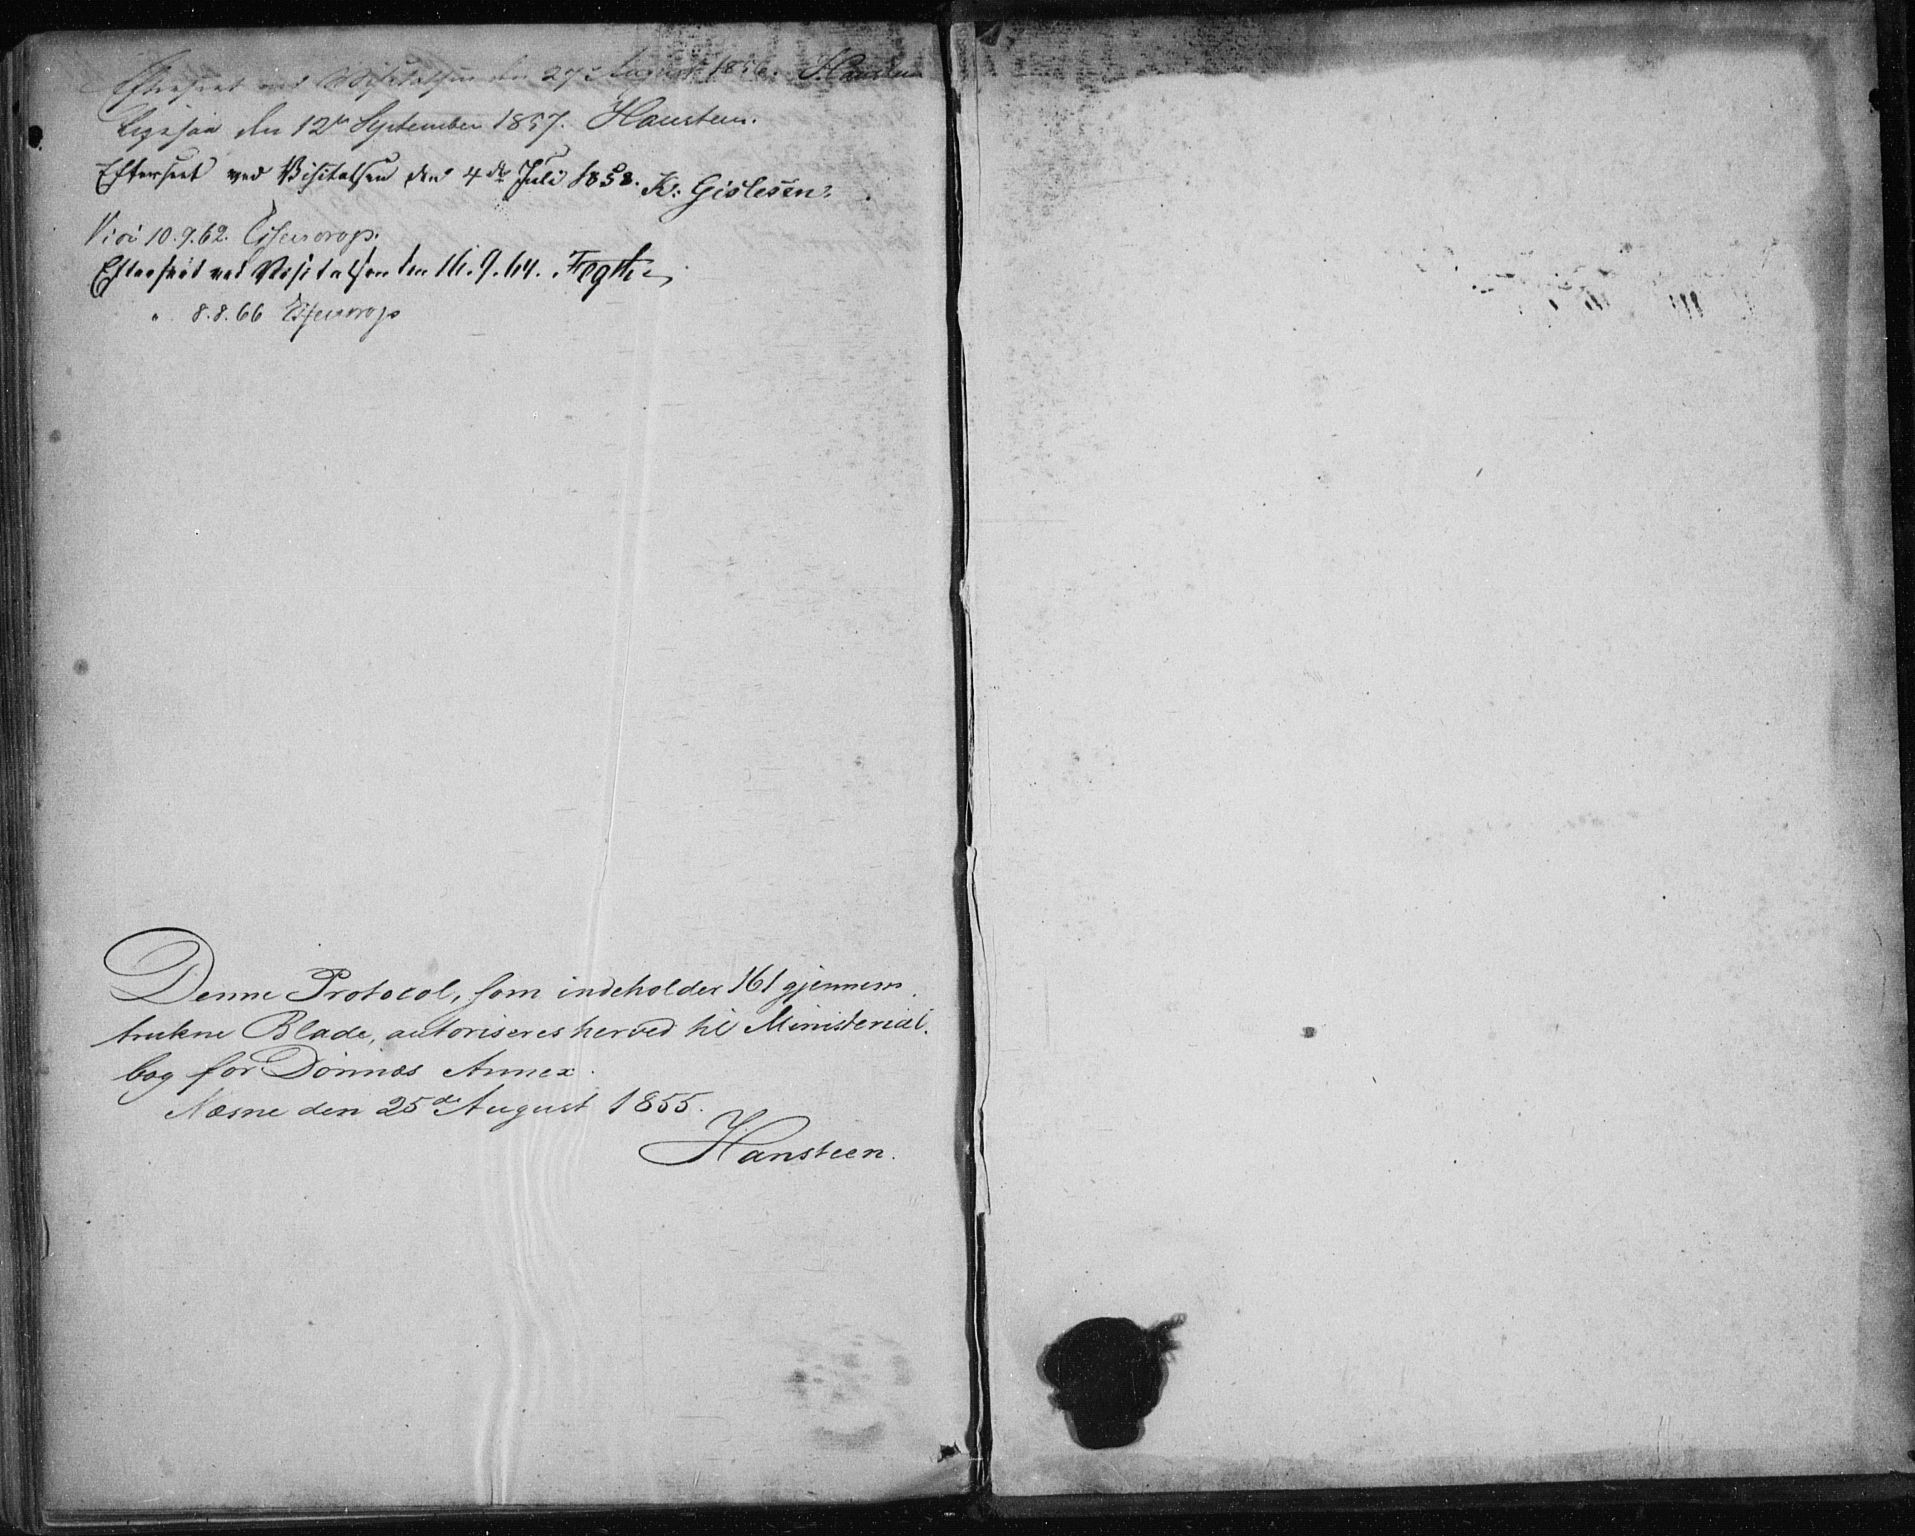 Efterseet ved Visitatsen den 27de August 1856. Hansteen
Ligesaa den 12te September 1857. Hansteen.
Efterseet ved Visitatsen den 4de Juli 1858. K: Gislesen.
Vidi 10.9.62.
Efterseet ved Visitatsen den 16.9.64.
" 8.8.66
Denne Protocol, som indeholder 161 gjennem
trukne Blade, autoriseres herved til Ministerial-
bog for Dönnæs Annex.
Næsne den 25de August 1855.
Hansteen.